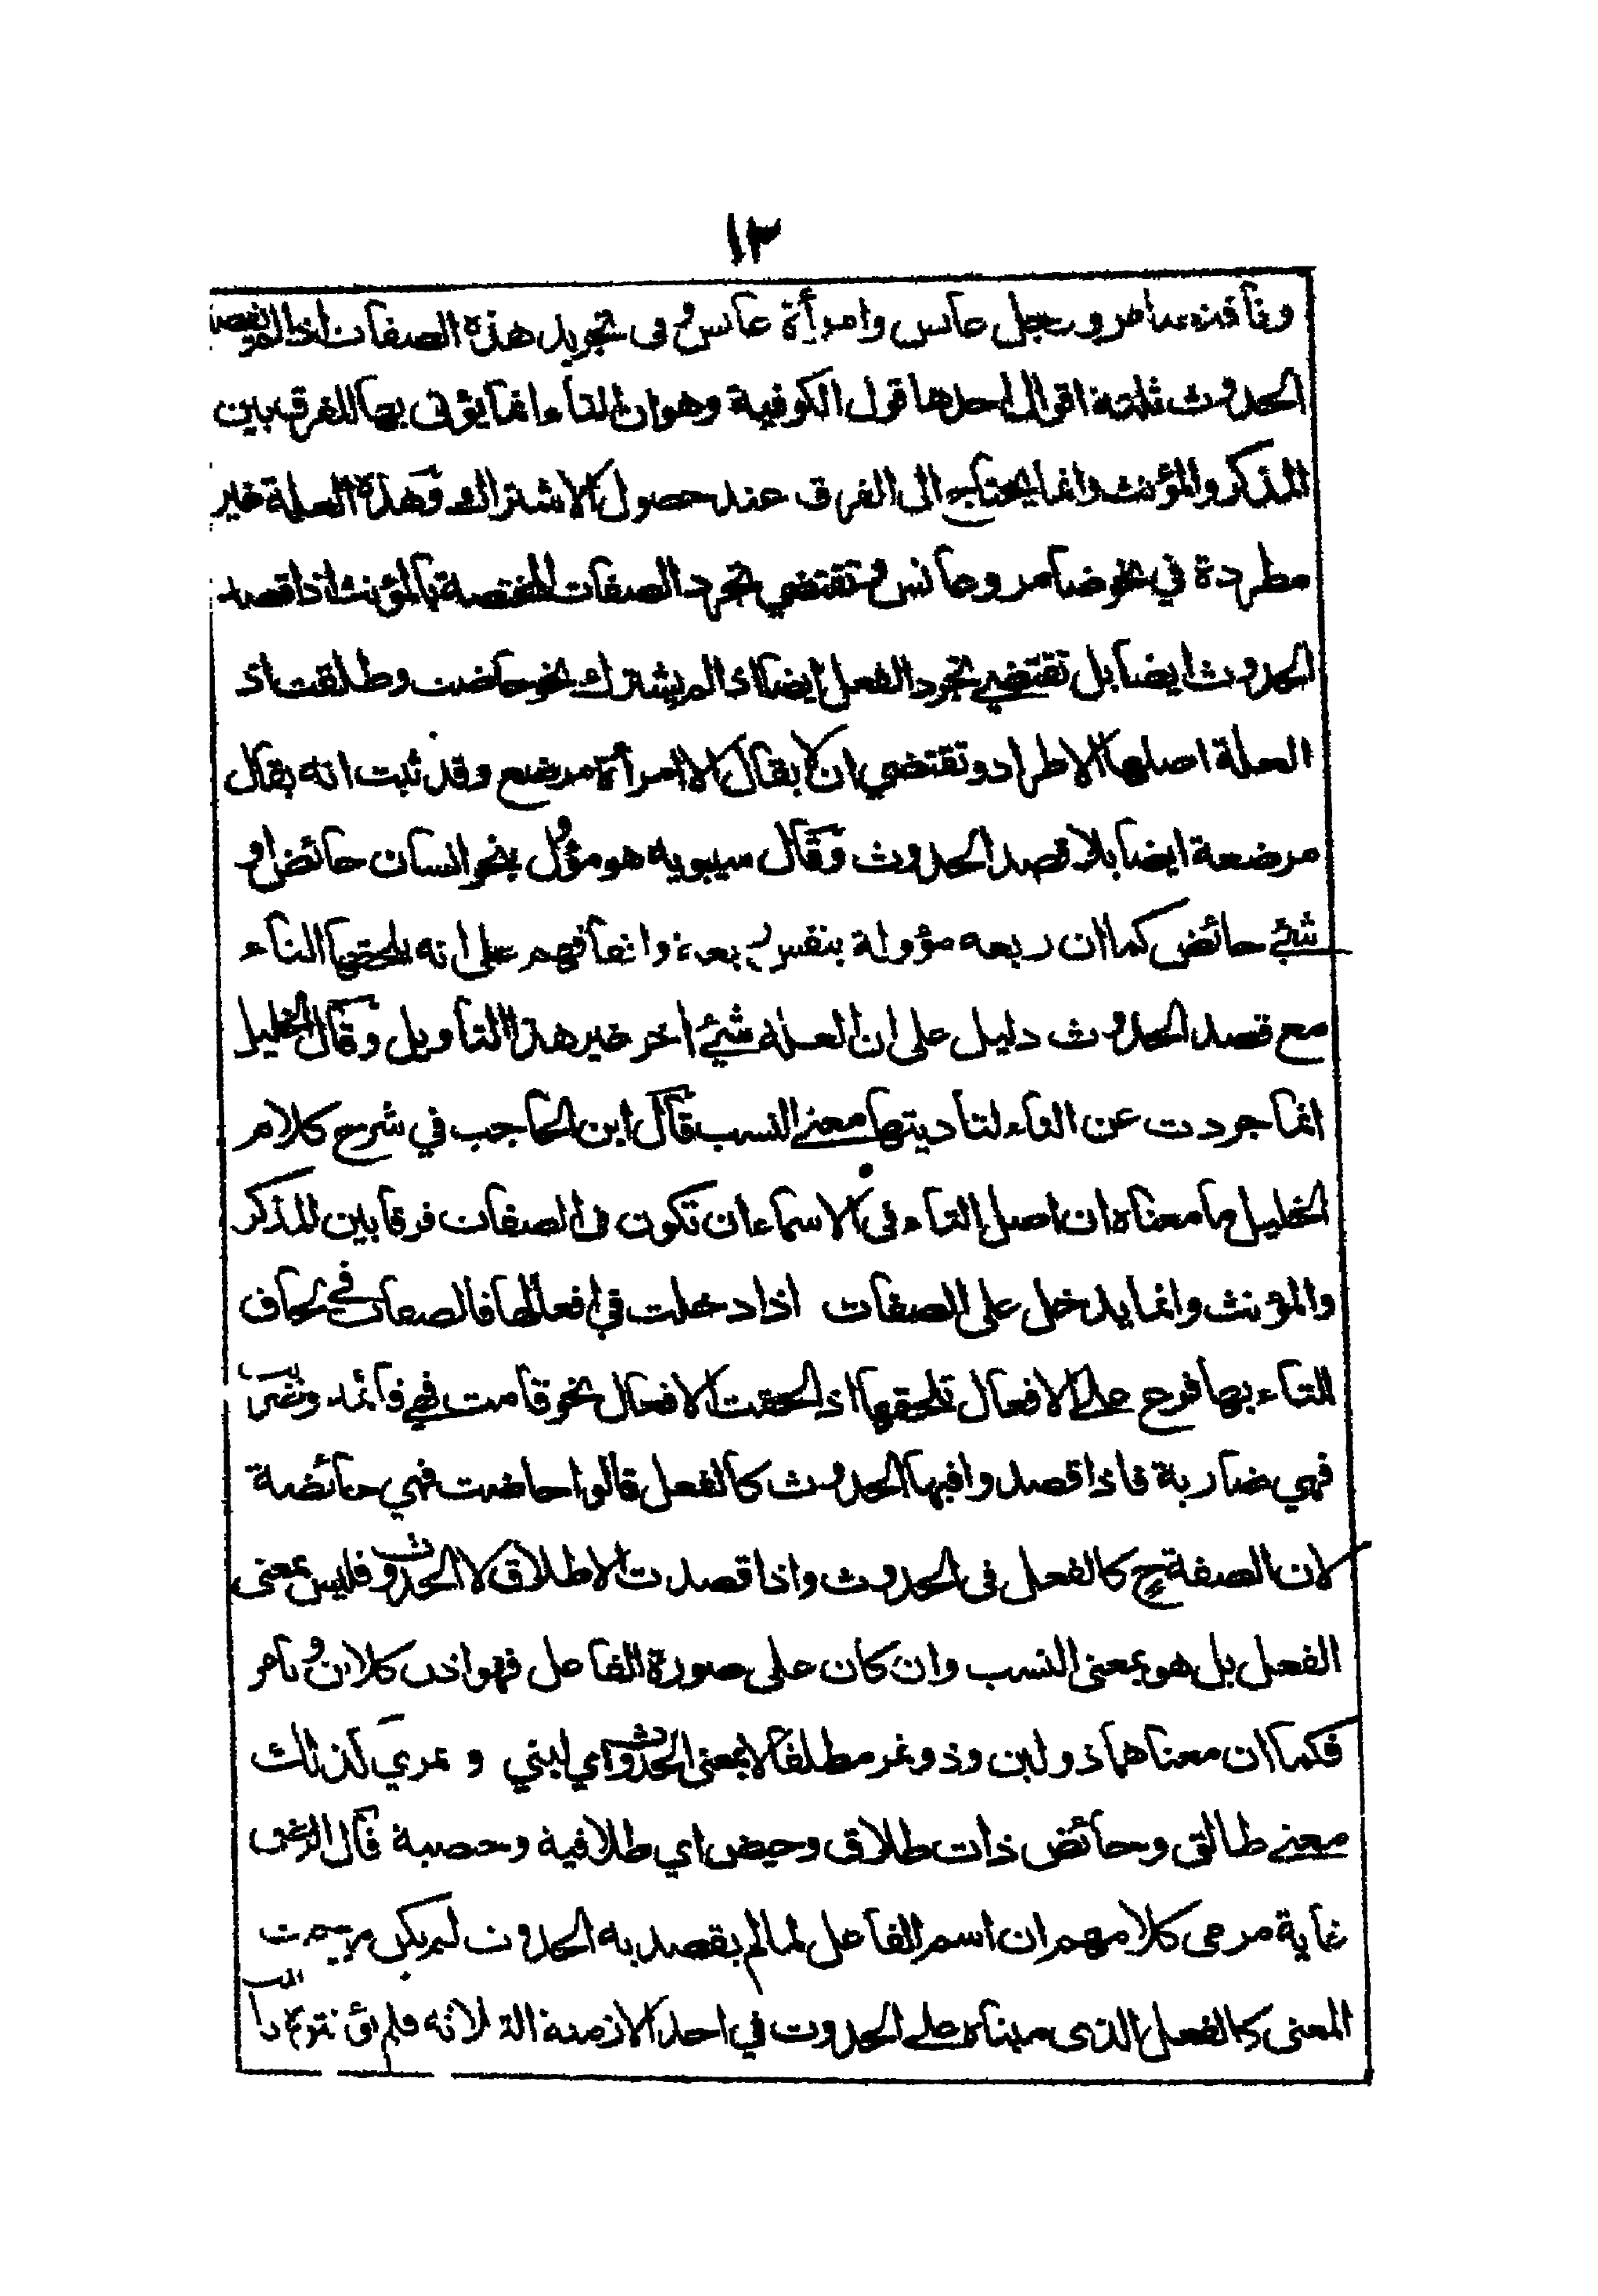 ١٣
وناقة ضامر ورجل عانس وامرأة عانس وفى تجريد هذه الصفات اذا لم يقصد
الحدوث ثلثة اقوال احدها قول الكوفية وهو ان التاء انما يؤتى بها للفرق بين
المذكر والمؤنث وانما يحتاج الى الفرق عند حصول الاشتراك وهذه العلة غير
مطردة في نحو ضامر وعانس وتقتضي تجرد الصفات المختصة بالمؤنث اذا قصد
الحدوث ايضا بل تقتضي تجرد الفعل ايضا اذا لم يشترك نحو حاضت وطلقت اذ
العلة اصلها الاطراد وتقتضي ان لا يقال الا امرأة مرضع وقد ثبت انه يقال
مرضعة ايضا بلا قصد الحدوث وقال سيبويه هو مؤل بنحو انسان حائض او
شئ حائض كما ان ربعه مؤولة بنفس ربعة واتفاقهم على انه يلحقها التاء
مع قصد الحدوث دليل على ان العلة شئ اخر غير هذا التأويل وقال الخليل
انما جردت عن التاء لتأديتها معنى النسب قال ابن الحاجب في شرح كلام
الخليل ما معناه ان اصل التاء في الاسماء ان تكون فى الصفات فرقا بين المذكر
والمؤنث وانما يدخل على الصفات اذا دخلت في افعالها فالصفات في لحاق
التاء بها فرع على الافعال تلحقها اذا لحقت الافعال نحو قامت فهي قائمة وضربت
فهي ضاربة فاذا قصدوا فيها الحدوث كالفعل قالوا حاضت فهي حائضة
لان الصفة ح كالفعل فى الحدوث واذا قصدت الاطلاق لا الحدوث فليس بمعنى
الفعل بل هو بمعنى النسب وان كان على صورة الفاعل فهو اذن كلابن وتامر
فكما ان معناهما ذو لبن وذو تمر مطلقا لا بمعنى الحدوث اي لبني و تمري كذلك
معنى طالق وحائض ذات طلاق وحيض اي طلاقية وحيضية قال الرضى
غاية مرمى كلامهم ان اسم الفاعل لما لم يقصد به الحدوث لم يكن من حيث
المعنى كالفعل الذى مبناه على الحدوث في احد الازمنة الثلاثة فلم يؤنث